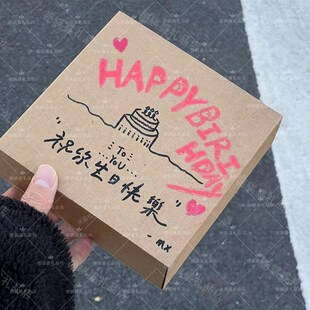 HAPPY BIRI
HDAY
To
You
"祝你生日快樂"
- mx